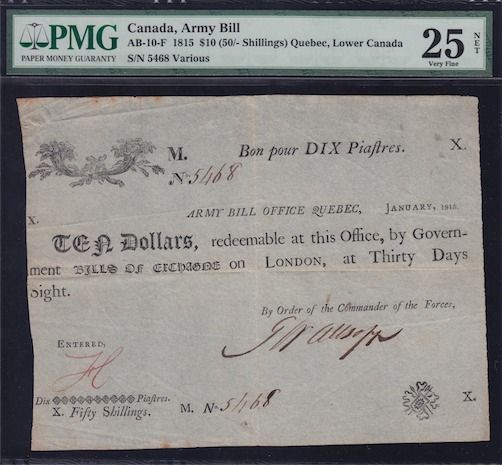 PMG
PAPER MONEY GUARANTY
Canada, Army Bill
AB-10-F 1815 $10 (50/- Shillings) Quebec, Lower Canada
S/N 5468 Various
25 NET
Very Fine
M. Bon pour DIX Piaſtres. X.
No 5468
X. ARMY BILL OFFICE QUEBEC, JANUARY, 1815.
TEN Dollars, redeemable at this Office, by Govern-
ment BILLS OF EXCHAGNE on LONDON, at Thirty Days
Sight.
By Order of the Commander of the Forces,
ENTERED,
Dix Piaſtres.
X. Fifty Shillings. M. No 5468 X.